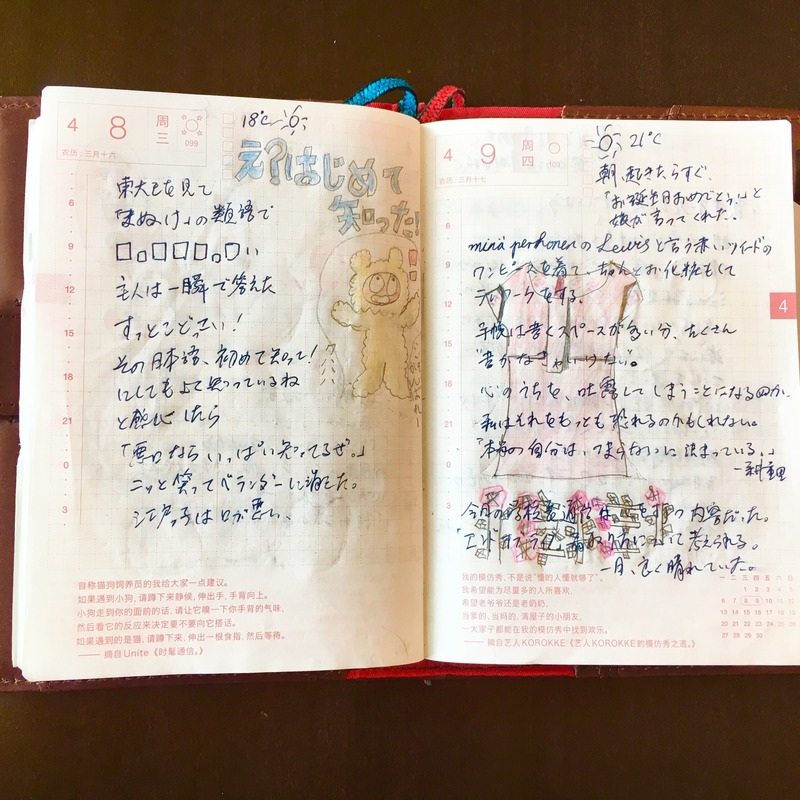 4 8 周三 099
农历：三月十六
18℃
え？はじめて
知った！
東大王を見て
「まぬけ」の類語で
□□□□□□い
主人は一瞬で答えた
すっとこどっこい！
その日本語、初めて知って！
にしてもよく知っているね
と感心したら
「悪口ならいっぱい知ってるぜ。」
ニッと笑ってベランダーに消えた。
江戸っ子は口が悪い、
6
9
12
15
18
21
0
3
自称猫狗饲养员的我给大家一点建议。
如果遇到小狗，请蹲下来静候，伸出手，手背向上。
小狗走到你的面前的话，请让它嗅一下你手背的气味，
然后看它的反应来决定要不要向它搭话。
如果遇到的是猫，请蹲下来，伸出一根食指，然后等待。
—— 摘自Unite《时髦通信。》
4 9 周四 100
农历：三月十七
21℃
朝、起きたらすぐ、
「お誕生日おめでとう！」と
娘が言ってくれた。
minä perhonenのLewisと言う赤いツイードの
ワンピースを着て、ちゃんとお化粧もして
テレワークをする。
手帳は書くスペースが多い分、たくさん
"書かなきゃいけない"。
心のうちを、吐露してしまうことになるのか、
私はそれをもっとも恐れるのかもしれない。
「本当の自分は、つまらないに決まっている。」
今月の学校書通りは、心を打つ内容だった。
について考えられる。
一日、良く晴れていた。
6
9
12
15
18
21
0
3
4
我的模仿秀，不是说"懂的人懂就够了"。
我希望能为尽量多的人所喜欢。
希望老爷爷还是老奶奶，
当爹的，当妈的，满屋子的小朋友，
一大家子都能在我的模仿秀中找到欢乐。
—— 摘自艺人KOROKKE《艺人KOROKKE的模仿秀之道。》
一 二 三 四 五 六 日
1 2 3 4 5
6 7 8 9 10 11 12
13 14 15 16 17 18 19
20 21 22 23 24 25 26
27 28 29 30